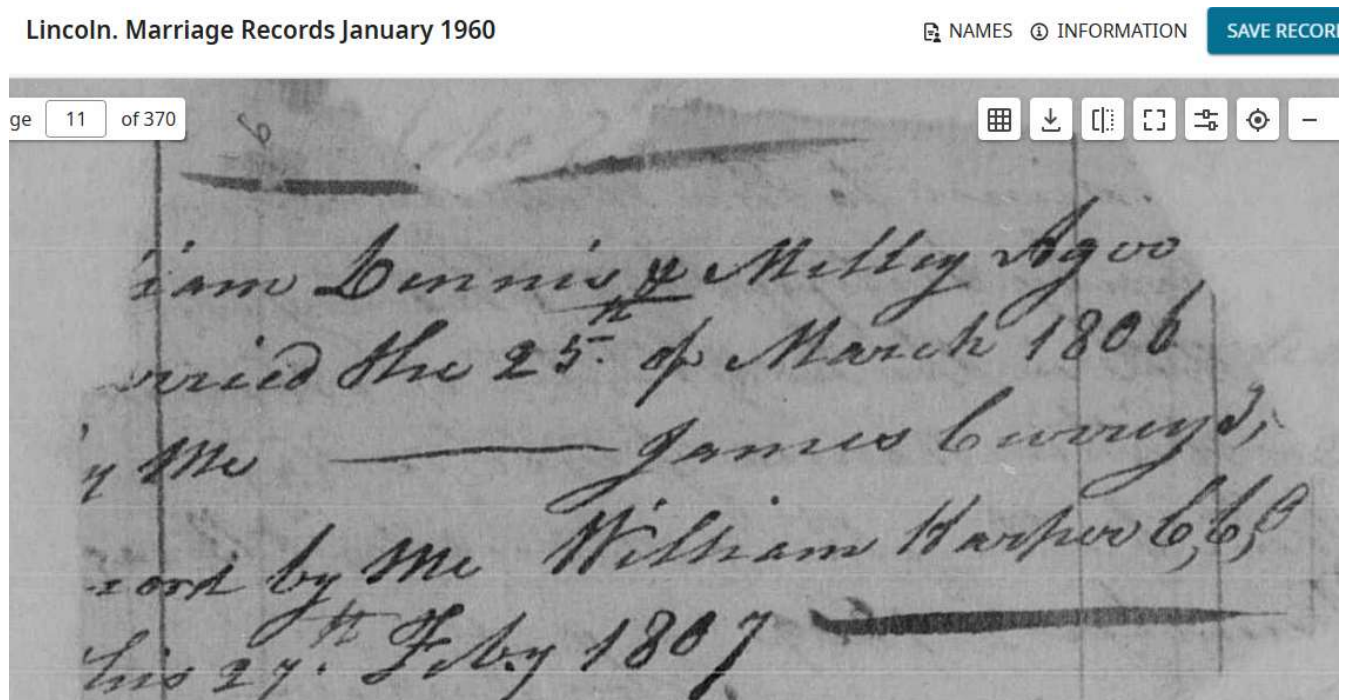 Lincoln. Marriage Records January 1960
NAMES
INFORMATION
SAVE RECOR
ge 11 of 370
iam Dennis & Milley Agoo
rried the 25th of March 1806
y Me — James Currey
cord by Me William Harper C,C,C
this 27th Feby 1807